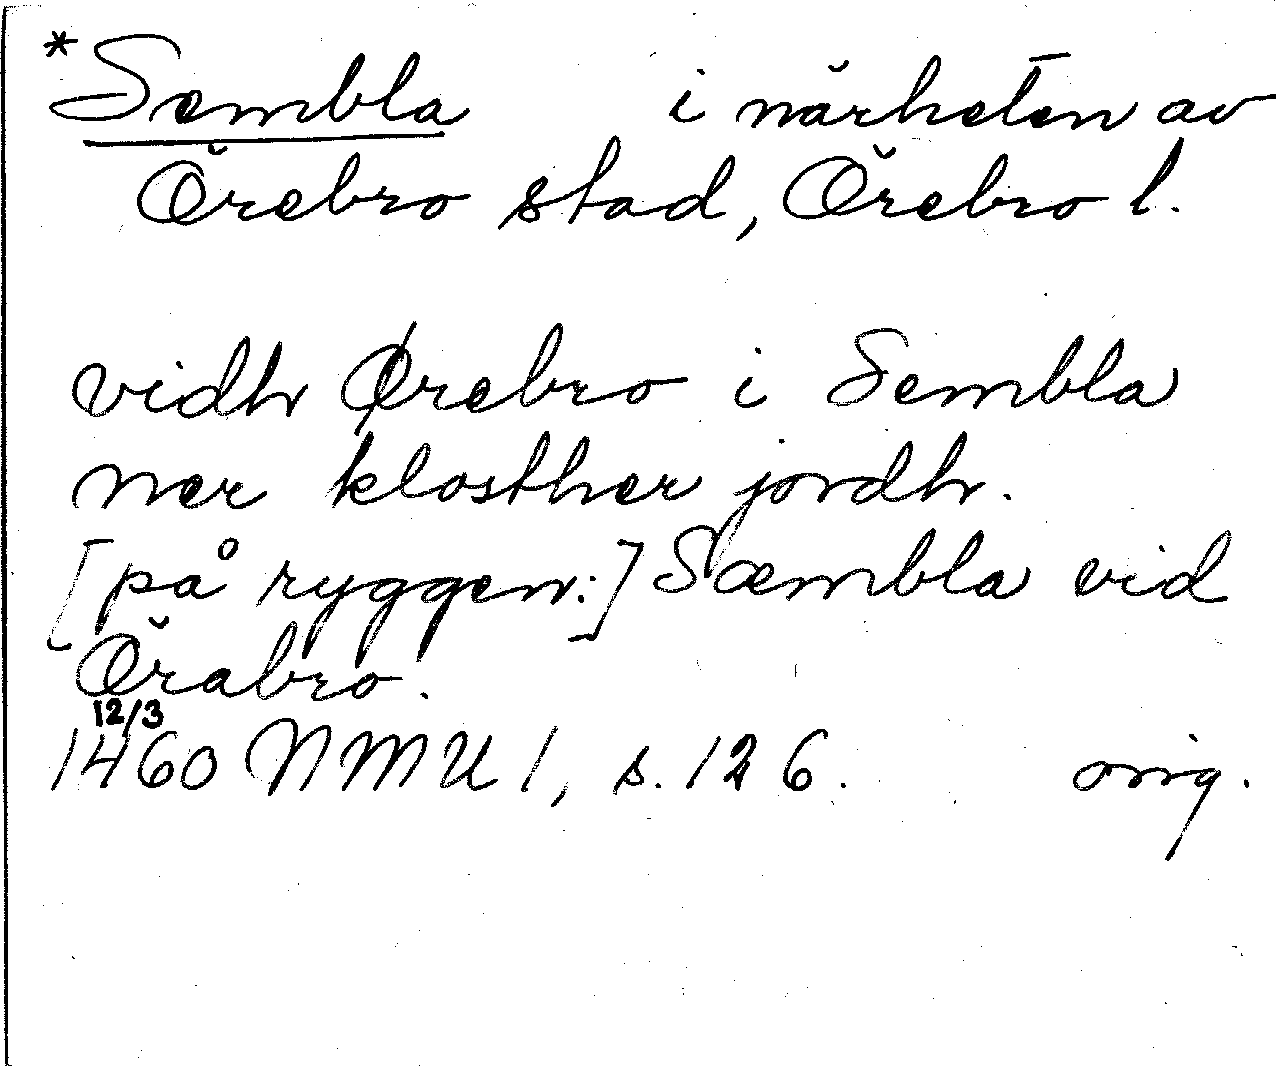 *Sembla i närheten av
Örebro stad, Örebro l.
vidh Ørebro i Sembla
ner klosther jordh.
[på ryggen:] Sæmbla vid
Örabro.
12/3
1460 NMU 1, s. 126. orig.